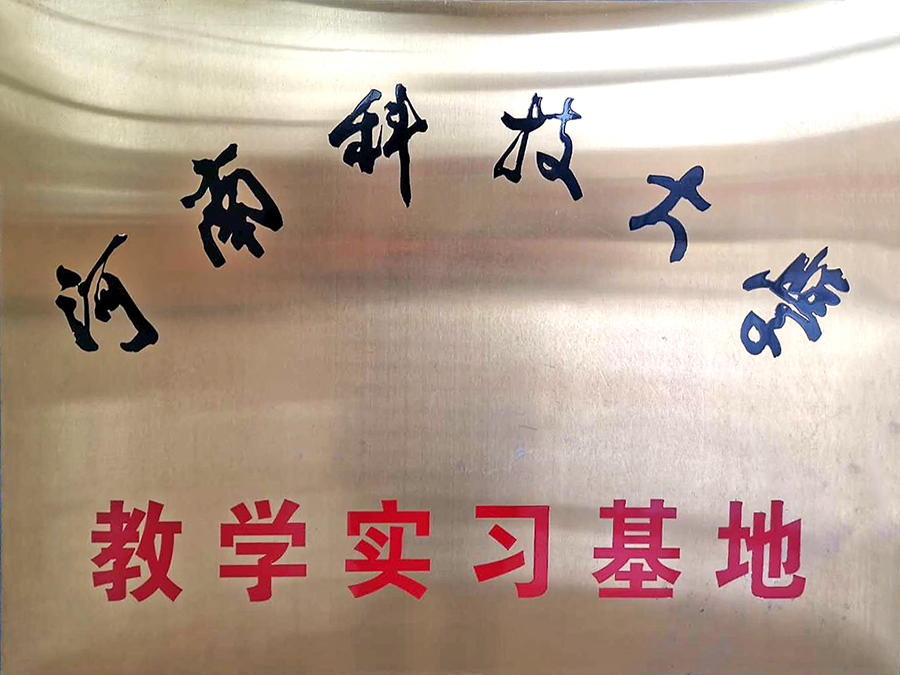 河南科技大学
教学实习基地